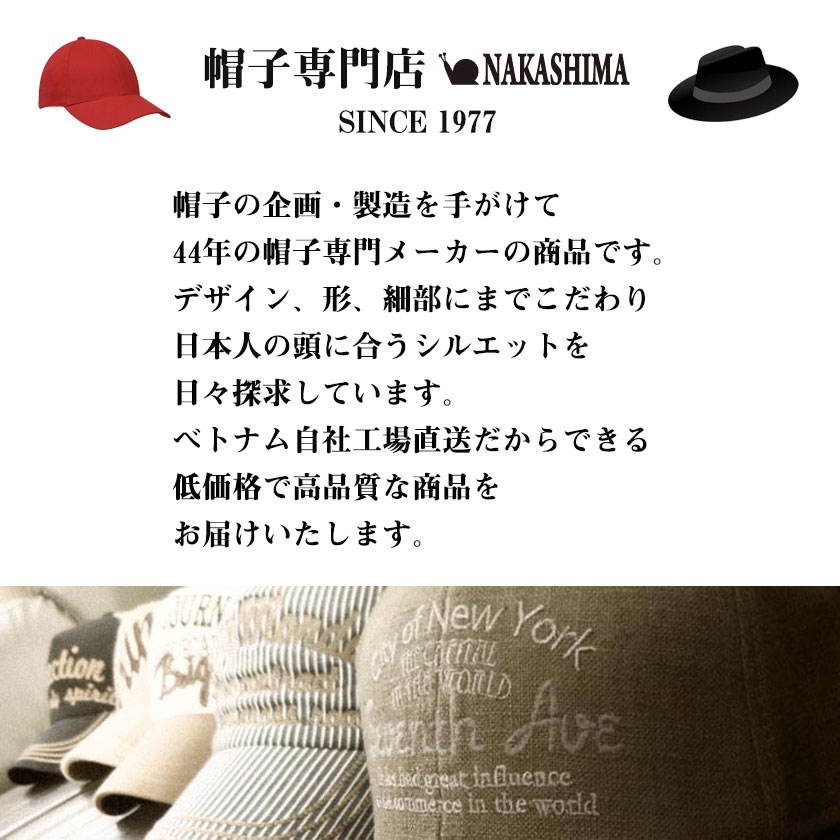 帽子専門店 NAKASHIMA
SINCE 1977
帽子の企画・製造を手がけて
44年の帽子専門メーカーの商品です。
デザイン、形、細部にまでこだわり
日本人の頭に合うシルエットを
日々探求しています。
ベトナム自社工場直送だからできる
低価格で高品質な商品を
お届けいたします。
City of New York
THE CAPITAL
IN THE WORLD
Seventh Ave
had great influence
commerce in the world